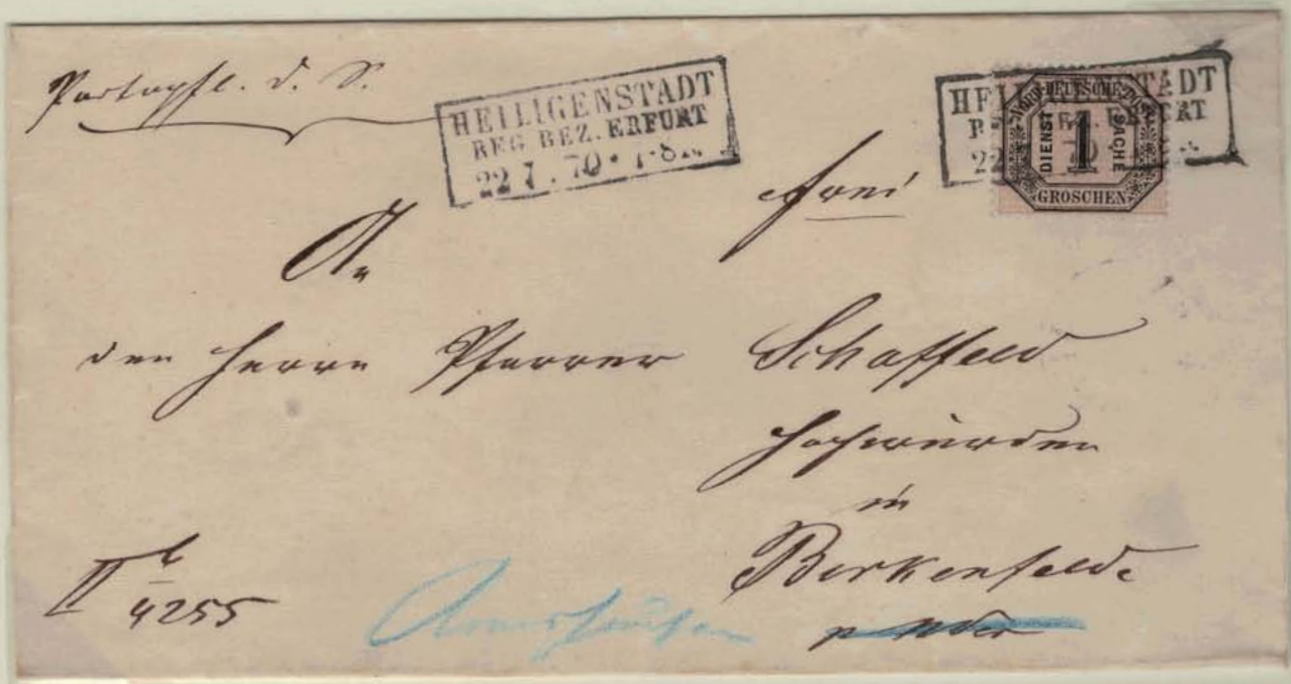 Portopfl. d. S.
HEILIGENSTADT
REG. BEZ. ERFURT
22 7. 70 *
HEILIGENSTADT
REG. BEZ. ERFURT
22 70
NORDDEUTSCHE POST
DIENST SACHE
1
GROSCHEN
frei
An
den Herrn Pfarrer Schaffeld
Hochwürden
in
Birkenfelde
II b
4255